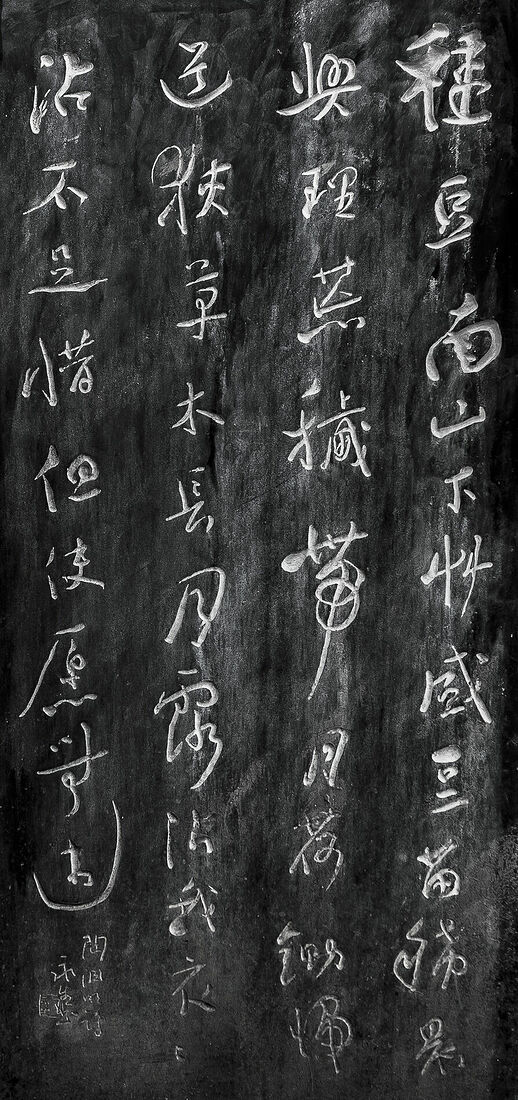 種豆南山下艸盛豆苗稀晨
興理荒穢帶月荷鋤歸
道狹草木長月露沾我衣〻
沾不足惜但使愿無違
陶渊明詩